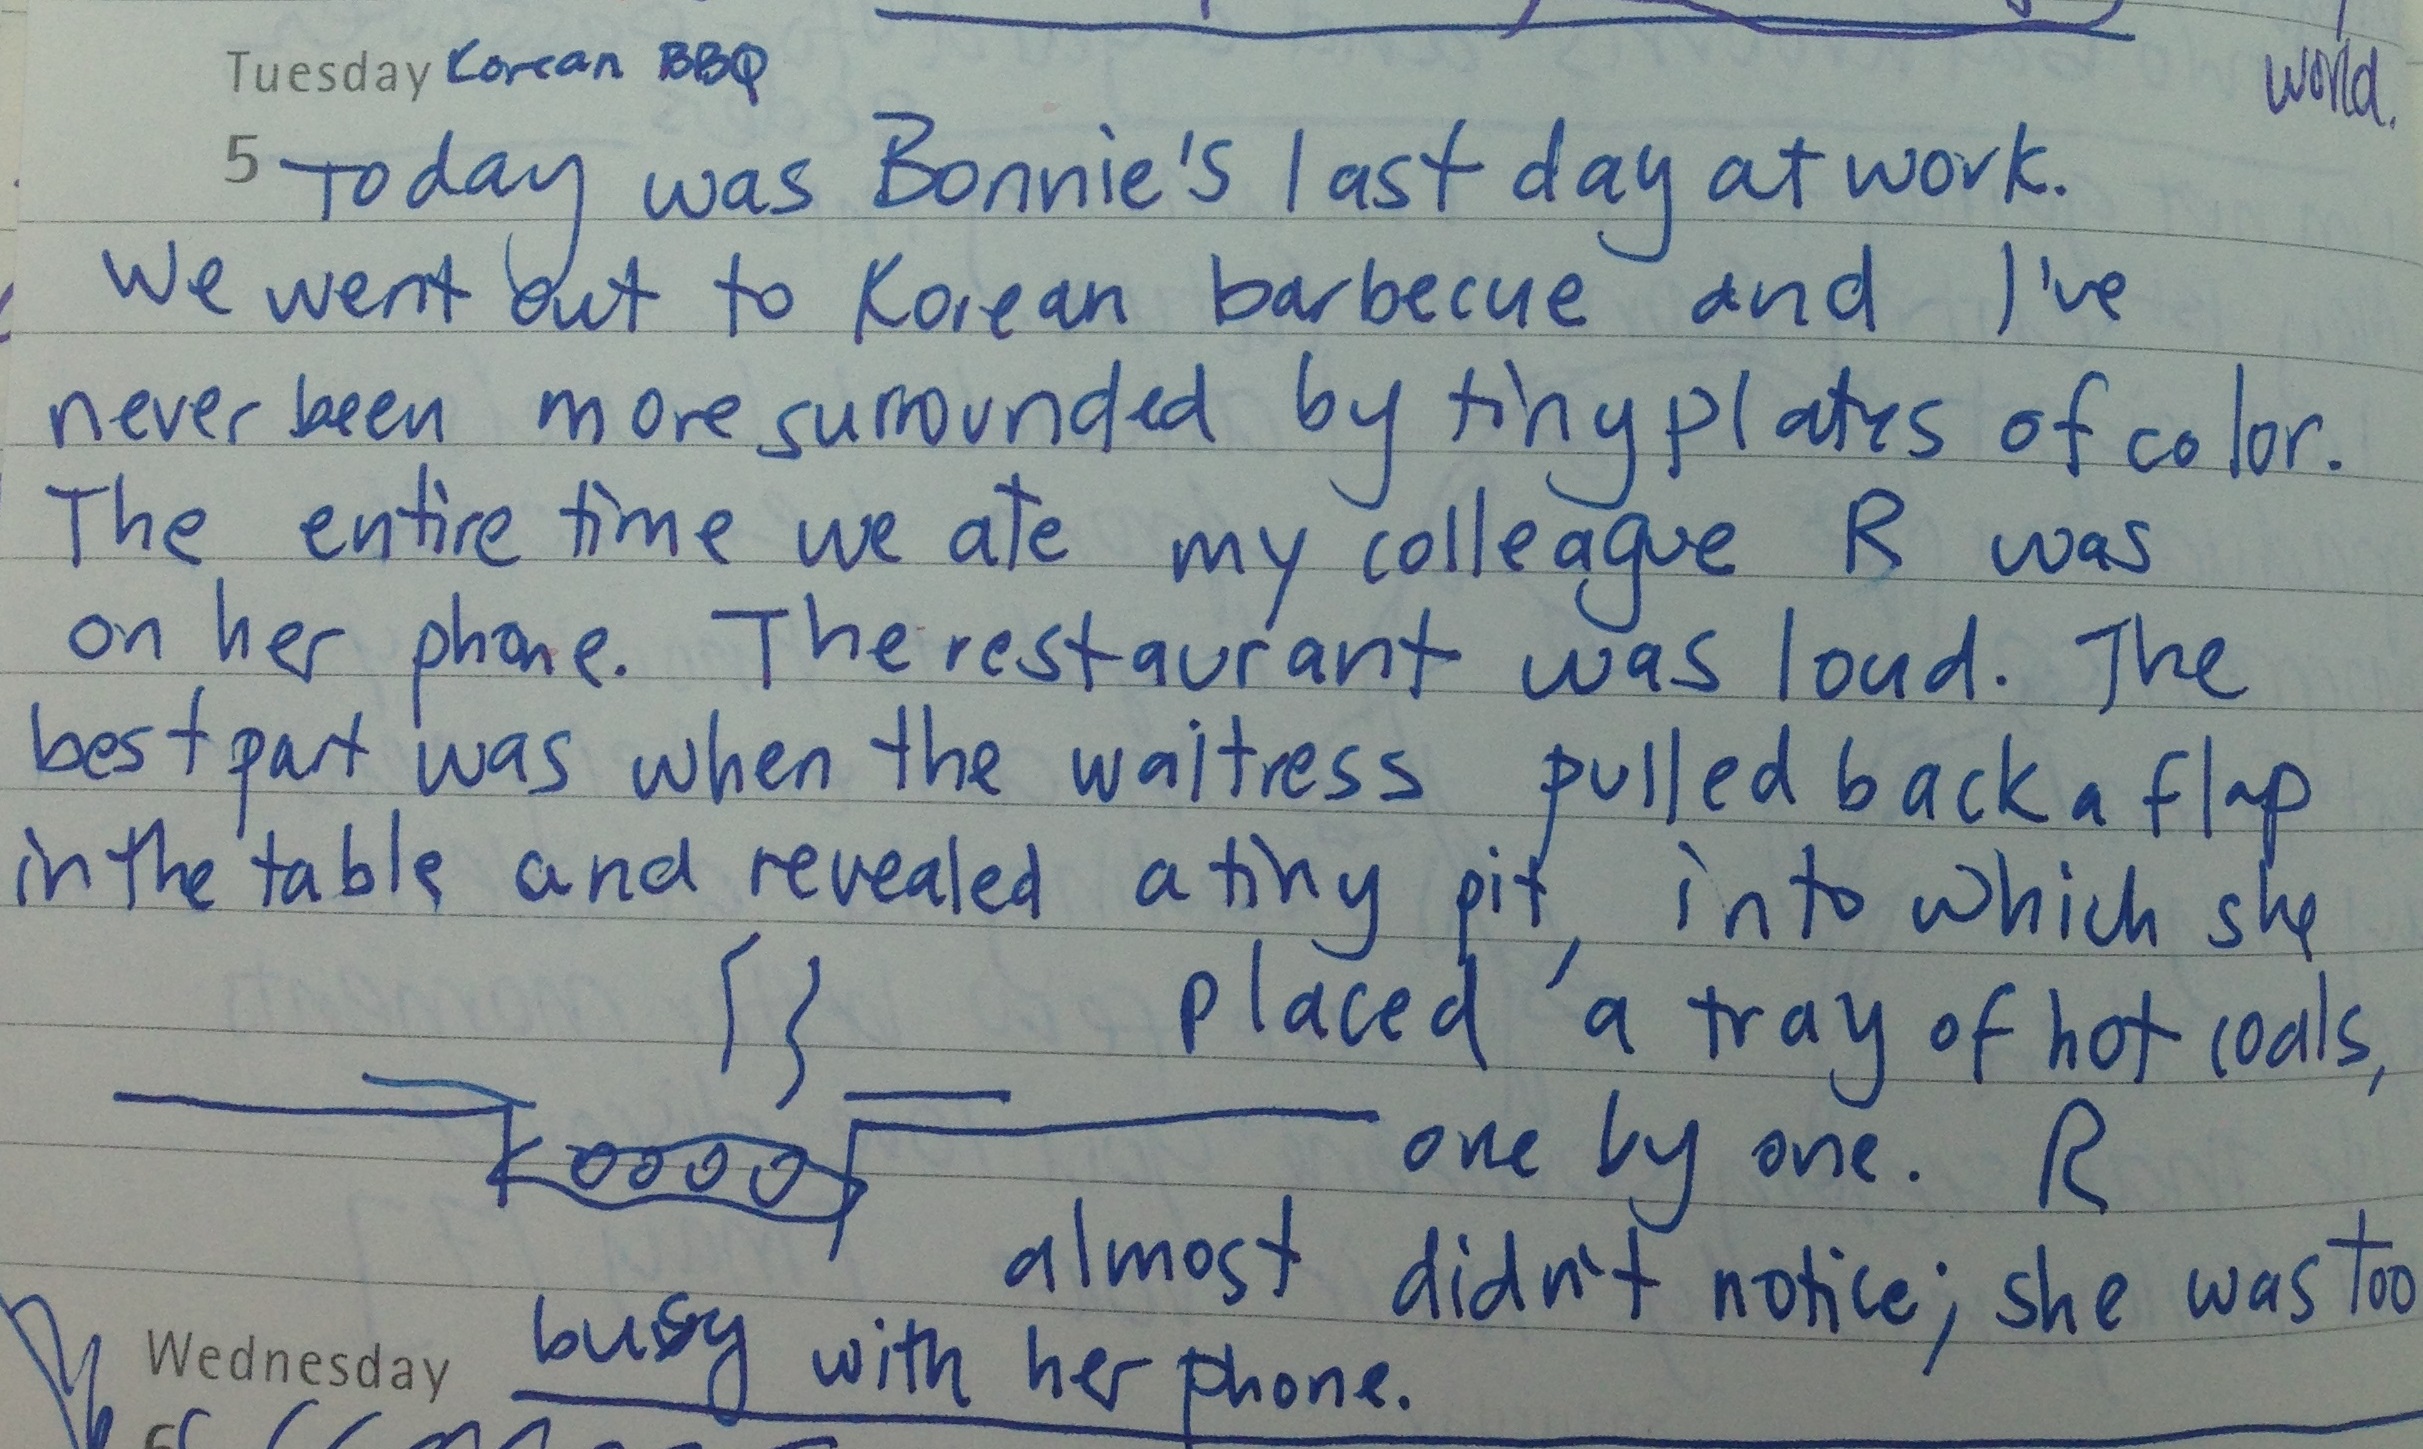 world.
Tuesday Korean BBQ
5 Today was Bonnie's last day at work.
We went out to Korean barbecue and I've
never been more surrounded by tiny plates of color.
The entire time we ate my colleague R was
on her phone. The restaurant was loud. The
best part was when the waitress pulled back a flap
in the table and revealed a tiny pit, into which she
placed a tray of hot coals,
one by one. R
almost didn't notice; she was too
busy with her phone.
Wednesday
6